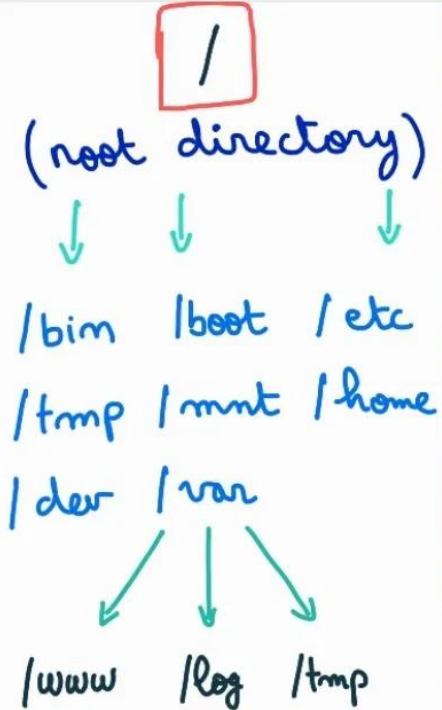 /
(root directory)
/bin /boot /etc
/tmp /mnt /home
/dev /var
/www /log /tmp